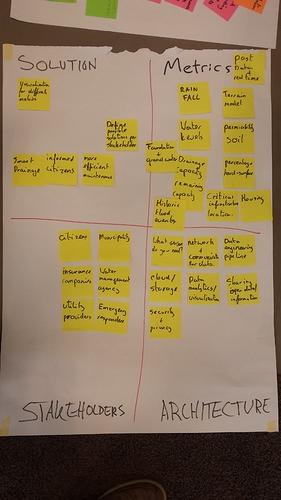 SOLUTION
Visualisation
for different
metrics
Define
possible
solutions per
stakeholder
Smart
Drainage
informed
citizens
more
efficient
maintenance
Metrics
Past
data
real time
RAIN
FALL
Terrain
model
Water
levels
permeability
soil
Foundation
+
ground water
Drainage
capacity
remaining
capacity
percentage
hard-surface
Historic
flood
events
Critical
infrastructure
location
Housing
Citizens
Municipality
insurance
companies
Water
management
agency
utility
providers
Emergency
responders
STAKEHOLDERS
What sensor
do you need?
Network
+
Connectivity
for data
Data
engineering
pipeline
cloud/
storage
Data
analytics/
visualisation
Sharing
open data/
information
security
+
privacy
ARCHITECTURE